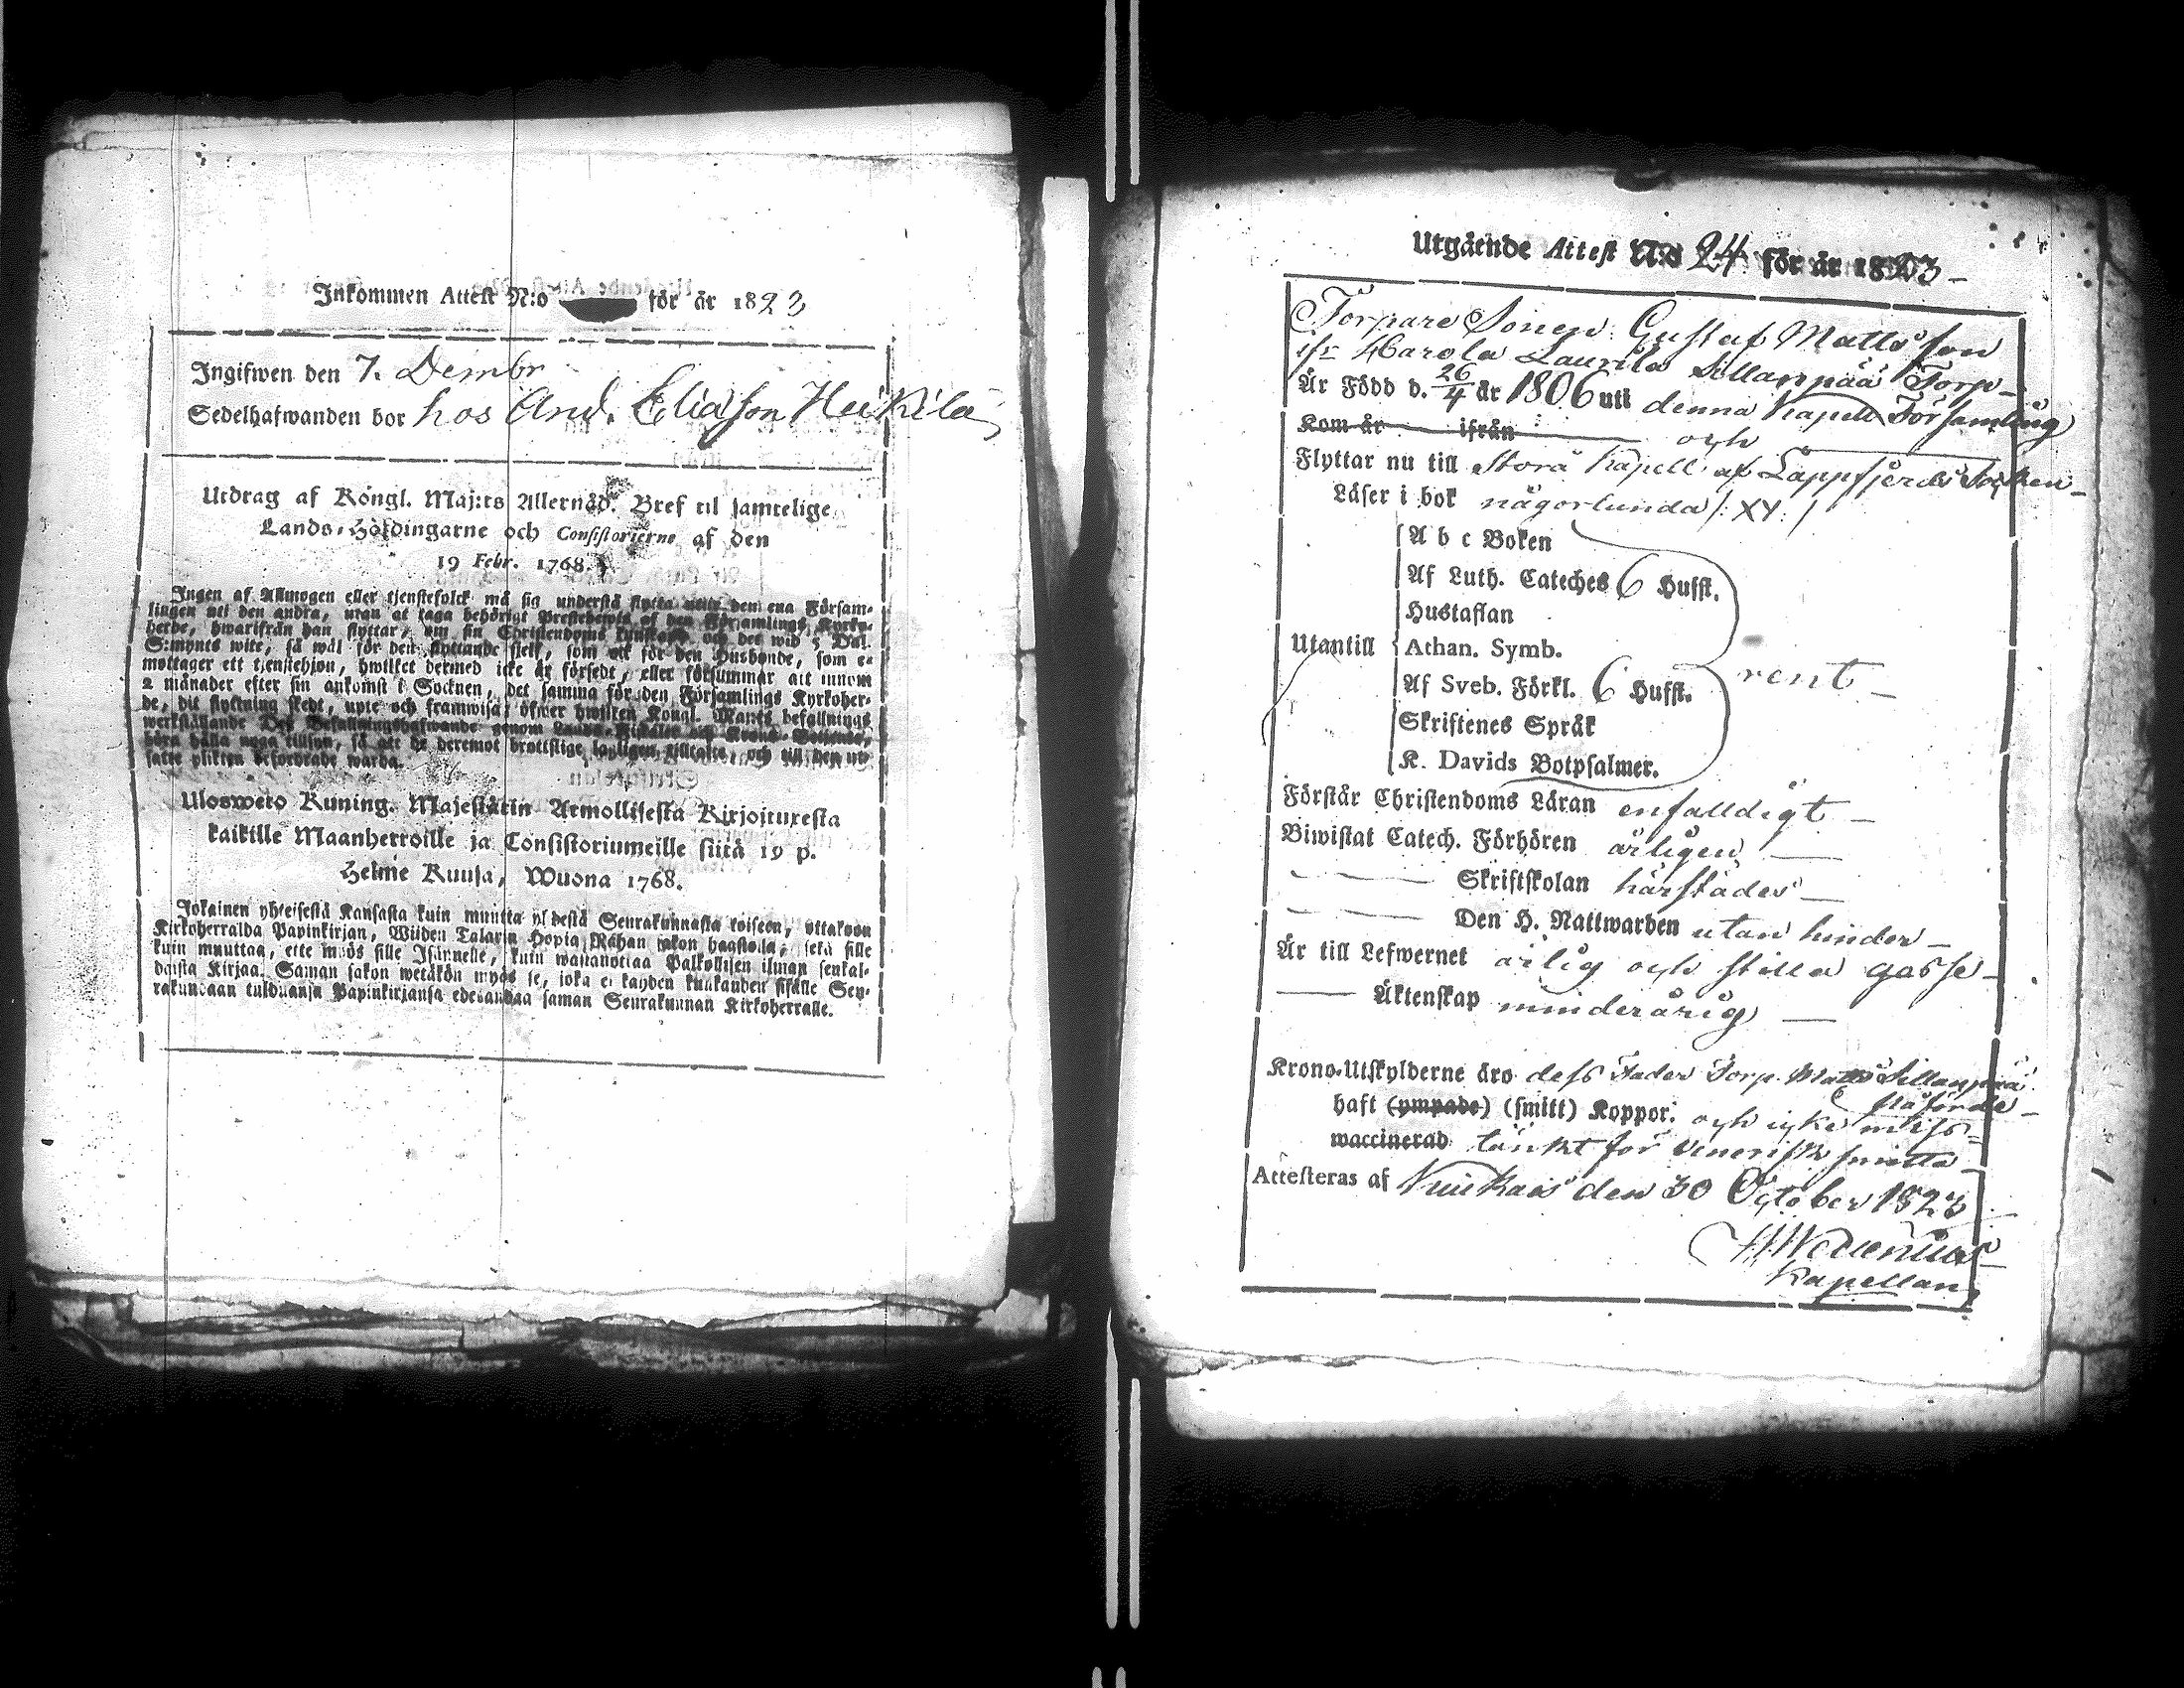 Inkommen Attest N:o för år 1823
Ingifwen den 7. Dembr
Sedelhafwanden bor hos And. Eliasson Heikilä
Utdrag af Kongl. Maj:ts Allernåd. Bref til samtelige
Lands-Höfdingarne och Consistorierne af den
19 Febr. 1768.
Ingen af Allmogen eller tjenstefolck må sig understå flytta utur den ena Försam-
lingen uti den andra, utan at taga behörigt Prestebewis af den Församlings Kyrko-
herde, hwarifrån han flyttar, om sin Christendoms kunskap och det wid 3 Dal.
S:mynts wite, så wäl för den flyttande sielf, som ock för den Husbonde, som e-
mottager ett tjenstehjon, hwilket dermed icke är försedt, eller försummar att innom
2 månader efter sin ankomst i Socknen, det samma för den Församlings Kyrkoher-
de, dit flyttning skedt, upte och framwisa; öfwer hwilken Kongl. Maj:ts befallnings
werkställande Des Befallningshafwande genom Lands-Fiskaler och Krono-Betjente,
böra hålla noga tillsyn, så att de deremot brottslige lagligen tilltalte, och till den ut-
satte plikten befordrade warda.
Ulosweto Kuning. Majestätin Armollisesta Kirjoituxesta
kaikille Maanherroille ja Consistoriumeille siitä 19 p.
Helme Kuusa, Wuona 1768.
Jokainen yhteisestä Kansasta kuin muutta yhdestä Seurakunnasta toiseen, ottakoon
Kirkoherralda Papinkirjan, Wiiden Talarin Hopia Rahan sakon haastolla, sekä sille
kuin muuttaa, ette myös sille Isännelle, kuin wastanottaa Palkollisen ilman senkal-
daista Kirjaa. Saman sakon wetäkön myös se, joka ei kahden kuukauden sisälle Seu-
rakundaan tulduansa Papinkirjansa edesandaa saman Seurakunnan Kirkoherralle.
Utgående Attest N:o 24 för år 1823
Torpare Sonen Gustaf Mattsson
ifr Karola Laurila Sillanpää Torp
Är Född d. 26/4 år 1806 uti denna Kapell Församling
Kom år ifrån och
Flyttar nu till Storå Kapell af Lappfjerds Socken
Läser i bok någorlunda /: XY: /
A b c Boken
Af Luth. Cateches 6 Hufst.
Hustaflan
Utantill Athan. Symb.
Af Sveb. Förkl. 6 Hufst. rent
Skriftenes Språk
K. Davids Botpsalmer.
Förstår Christendoms Läran enfalldigt
Biwistat Catech. Förhören årligen
Skriftskolan härstädes
Den H. Nattwarden utan hinder
Är till Lefwernet ärlig och stilla gosse
Äktenskap minderårig
Krono-Utskylderne äro dess Fader Torp. Matts Sillanpää
påförde
haft (ympade) (smitt) Koppor. och icke miss-
waccinerad tänkt för Venerisk smitta
Attesteras af den 30 October 1823
Kapellan